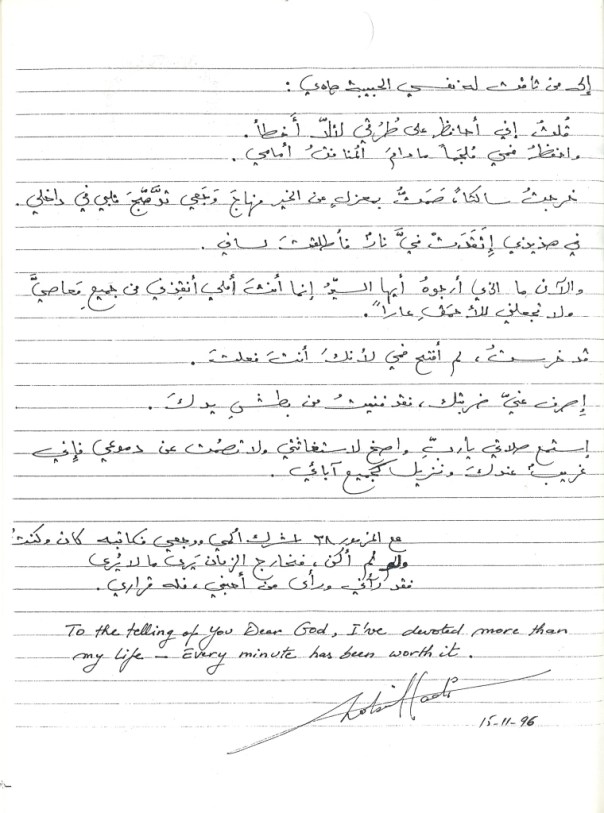 إلى من تاقت له نفسي الحبيبة هادي :
قُلتُ إني أحافظ على طُرُقي لئلاّ أخطأ.
واحفظُ فمي مُلجَماً مادامَ المنافقُ أمامي.
خرجتُ ساكتاً، صَمَتُّ بمعزلٍ عن الخير فهاجَ وَجَعي تَوَهَّجَ قلبي في داخلي.
في هذيذي إتَّقَدَتْ فيَّ نارٌ فأطلقتُ لساني.
والآن ما الذي أرجوهُ أيها السيّدُ إنما أنتَ أملي أنقِذني من جميعِ مَعاصيَّ
ولا تجعلني للأحمقِ عاراً.
قد خرستُ، لم أفتح فمي لأنكَ أنتَ فعلتَ.
إصرف عنّي ضربتك، فقد فنيتُ من بطشِ يدكَ.
إستمع صلاتي ياربّ واصغِ لاستغاثتي ولا تصمُت عن دموعي فإني
غريبٌ عندكَ ونزيلٌ كجميع آبائي.
مع المزمور ٣٨ اشترك ألمي ووجعي فكاتبه كان وكنتُ
ولم أكن، فخارج الزمان يَرى ما لا يُرى
فقد رآني ورأى من أحبني، فله قراري.
To the telling of You Dear God, I've devoted more than
my life – Every minute has been worth it.
15-11-96